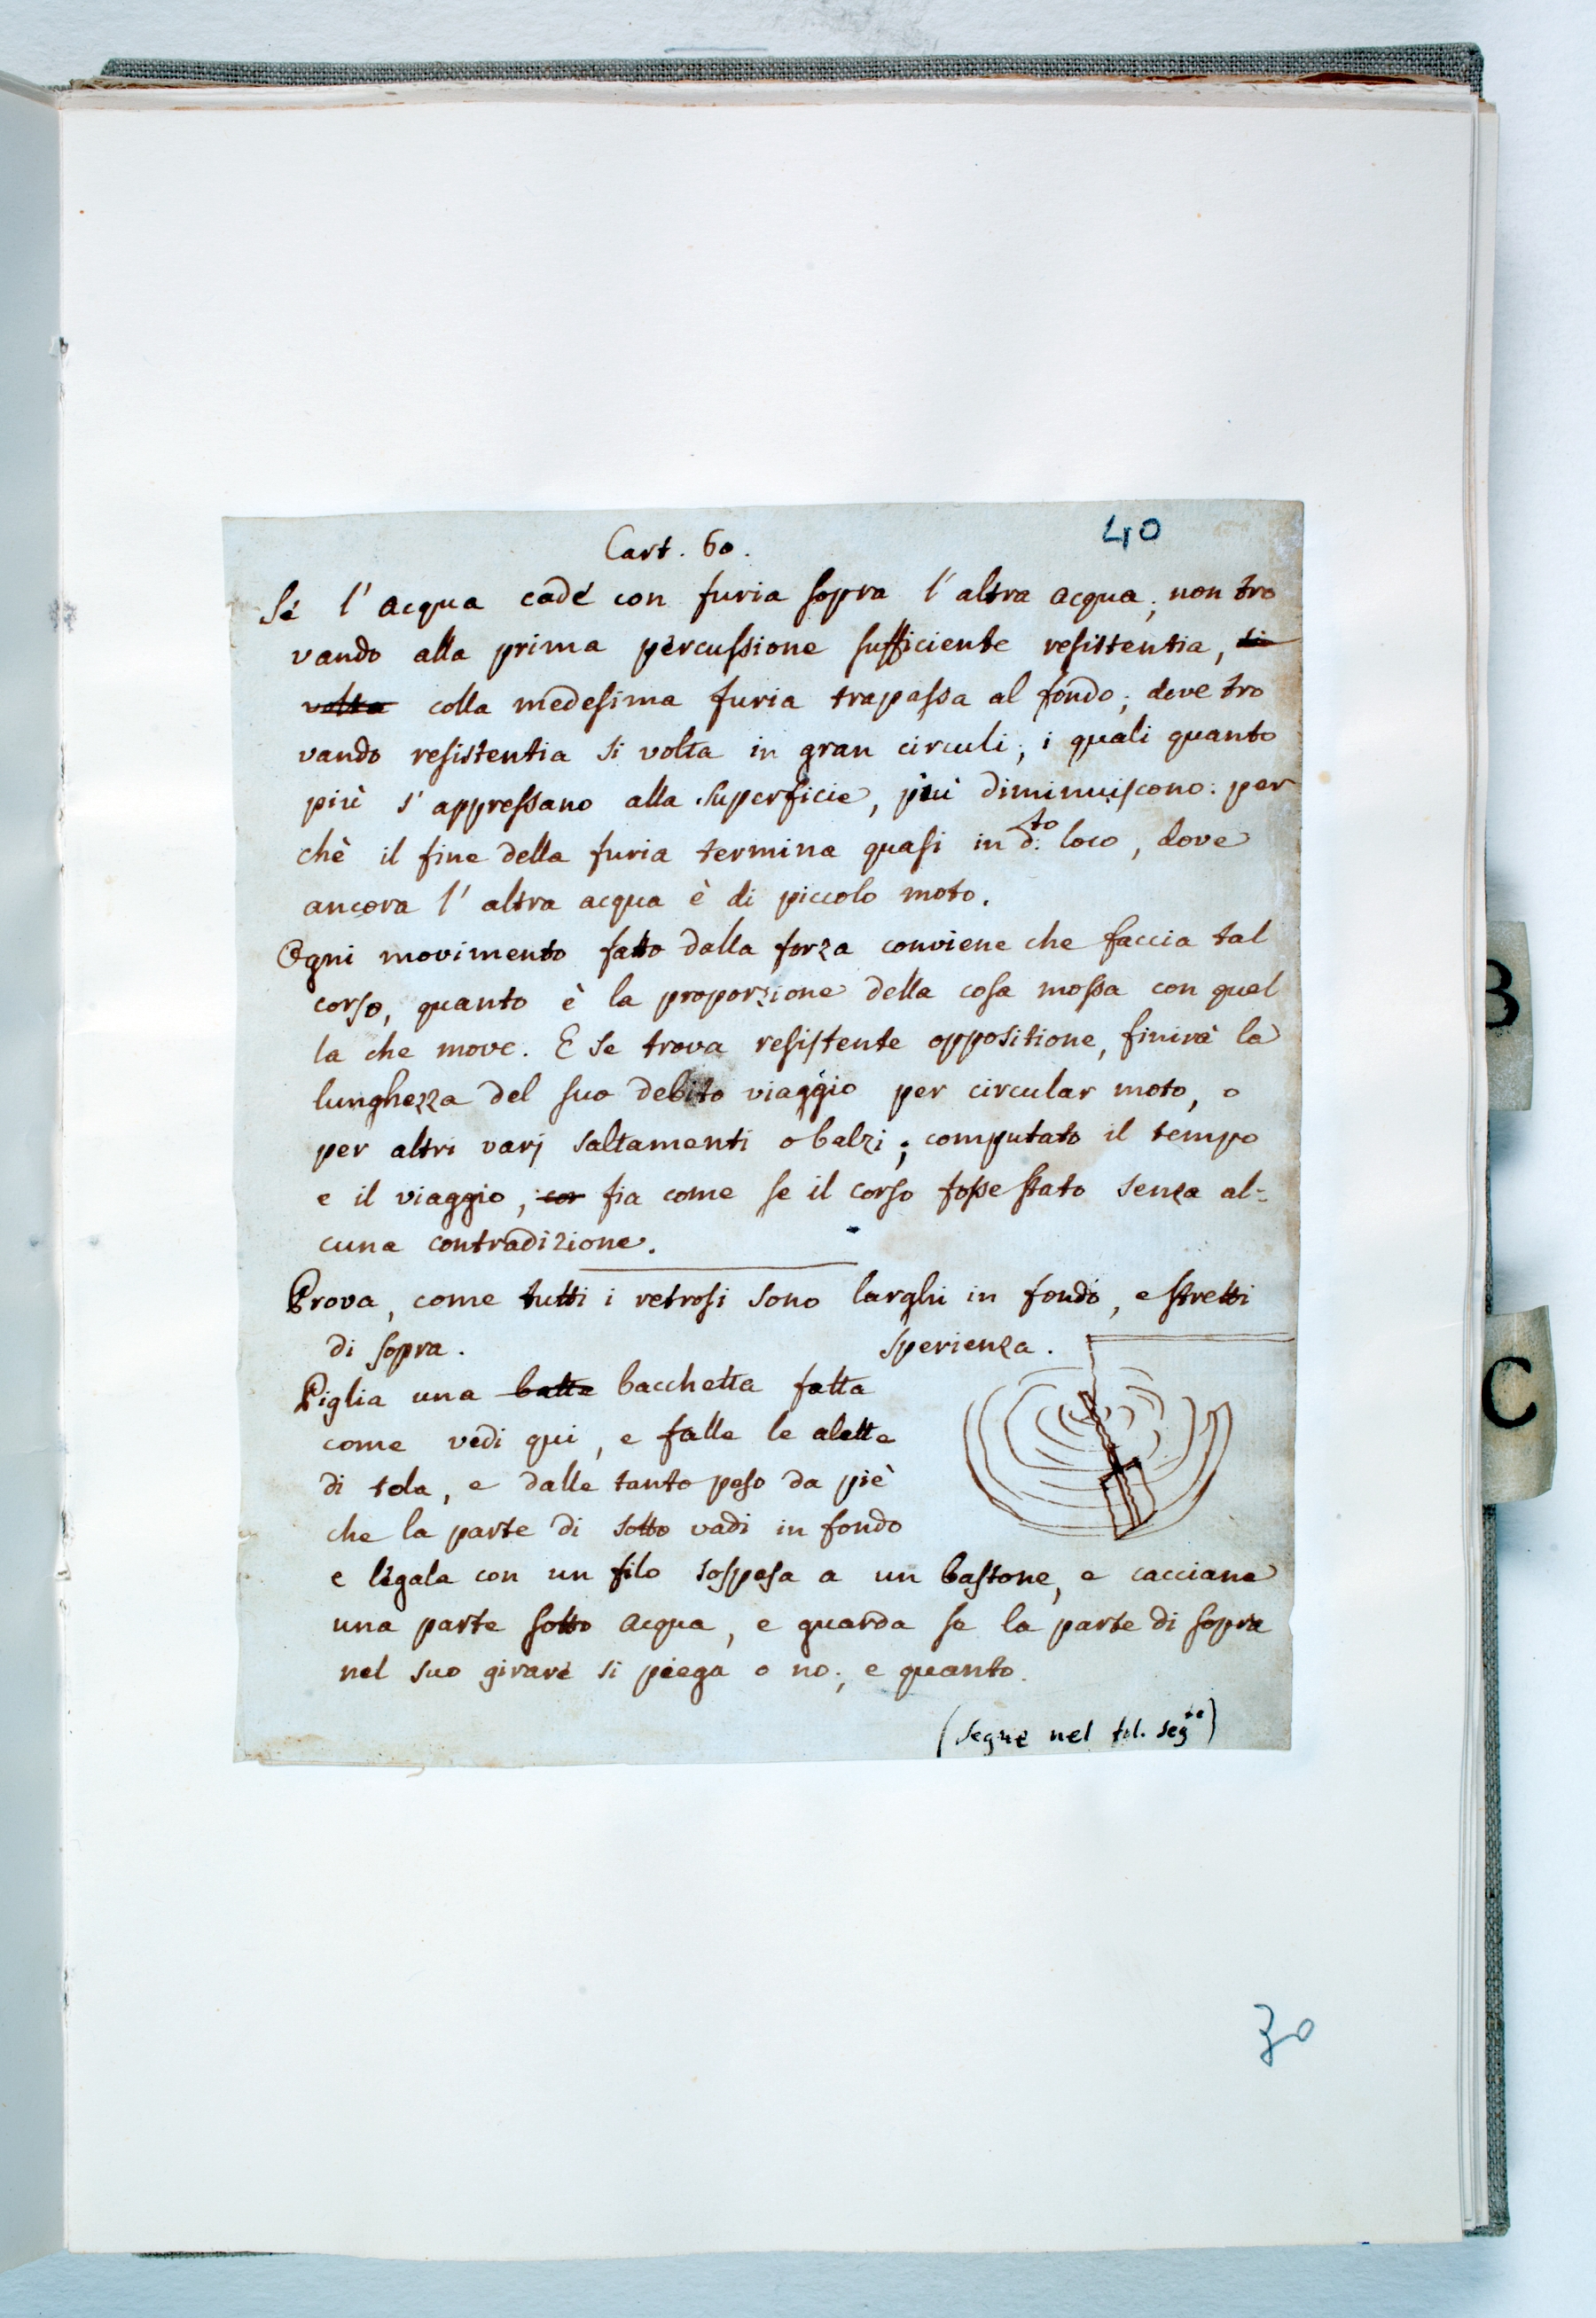 40
Cart. 60.
Se l'acqua cade con furia sopra l'altra acqua; non tro
vando alla prima percussione sufficiente resistentia, si
volta colla medesima furia trapassa al fondo; dove tro
vando resistentia si volta in gran circuli; i quali quanto
più s'appressano alla superficie, più diminuiscono: per
chè il fine della furia termina quasi in d.to loco, dove
ancora l'altra acqua è di piccolo moto.
Ogni movimento fatto dalla forza conviene che faccia tal
corso, quanto è la proporzione della cosa mossa con quel
la che move. E se trova resistente oppositione, finirà la
lunghezza del suo debito viaggio per circular moto, o
per altri varj saltamenti o balzi; computato il tempo
e il viaggio, cor fia come se il corso fosse stato senza al-
cuna contradizione.
Prova, come tutti i retrosi sono larghi in fondo, e stretti
di sopra. sperienza.
Piglia una batte bacchetta fatta
come vedi qui, e falle le alette
di tola, e dalle tanto peso da piè
che la parte di sotto vadi in fondo
e légala con un filo sospesa a un bastone, e cacciane
una parte sotto acqua, e guarda se la parte di sopra
nel suo girare si piega o no; e quanto.
(segue nel fol. seg.te)
30
B
C